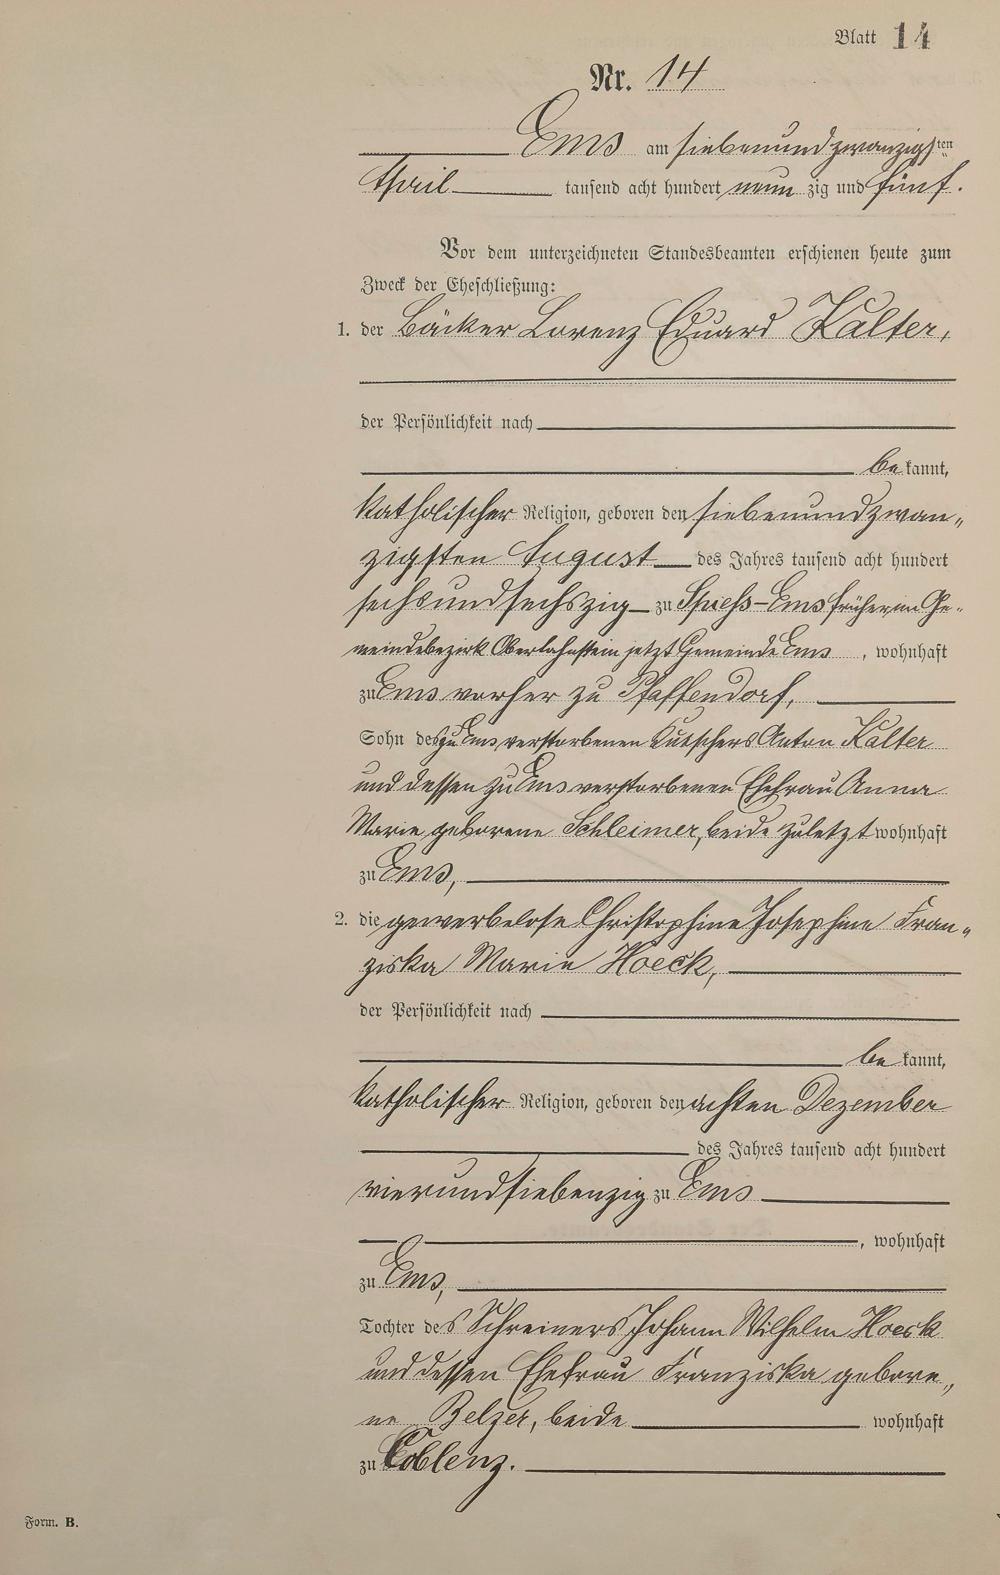 Blatt 14
Nr. 14
Ems am siebenundzwanzigsten
April tausend acht hundert neunzig und fünf.
Vor dem unterzeichneten Standesbeamten erschienen heute zum
Zweck der Eheschließung:
1. der Bäcker Lorenz Eduard Kalter,
der Persönlichkeit nach
bekannt,
katholischer Religion, geboren den siebenundzwan-
zigsten August des Jahres tausend acht hundert
sechsundsechszig zu Spieß-Ems früher im Ge-
meindebezirk Oberlahnstein jetzt Gemeinde Ems, wohnhaft
zu Ems vorher zu Pfaffendorf,
Sohn des zu Ems verstorbenen Kutschers Anton Kalter
und dessen zu Ems verstorbenen Ehefrau Anna
Marie geborene Schleimer, beide zuletzt wohnhaft
zu Ems,
2. die gewerbelose Christophine Josephine Fran-
ziska Marie Hoeck,
der Persönlichkeit nach
bekannt,
katholischer Religion, geboren den achten Dezember
des Jahres tausend acht hundert
vierundsiebenzig zu Ems
, wohnhaft
zu Ems,
Tochter des Schreiners Johann Wilhelm Hoeck
und dessen Ehefrau Franziska gebore-
ne Belzer, beide wohnhaft
zu Coblenz.
Form. B.